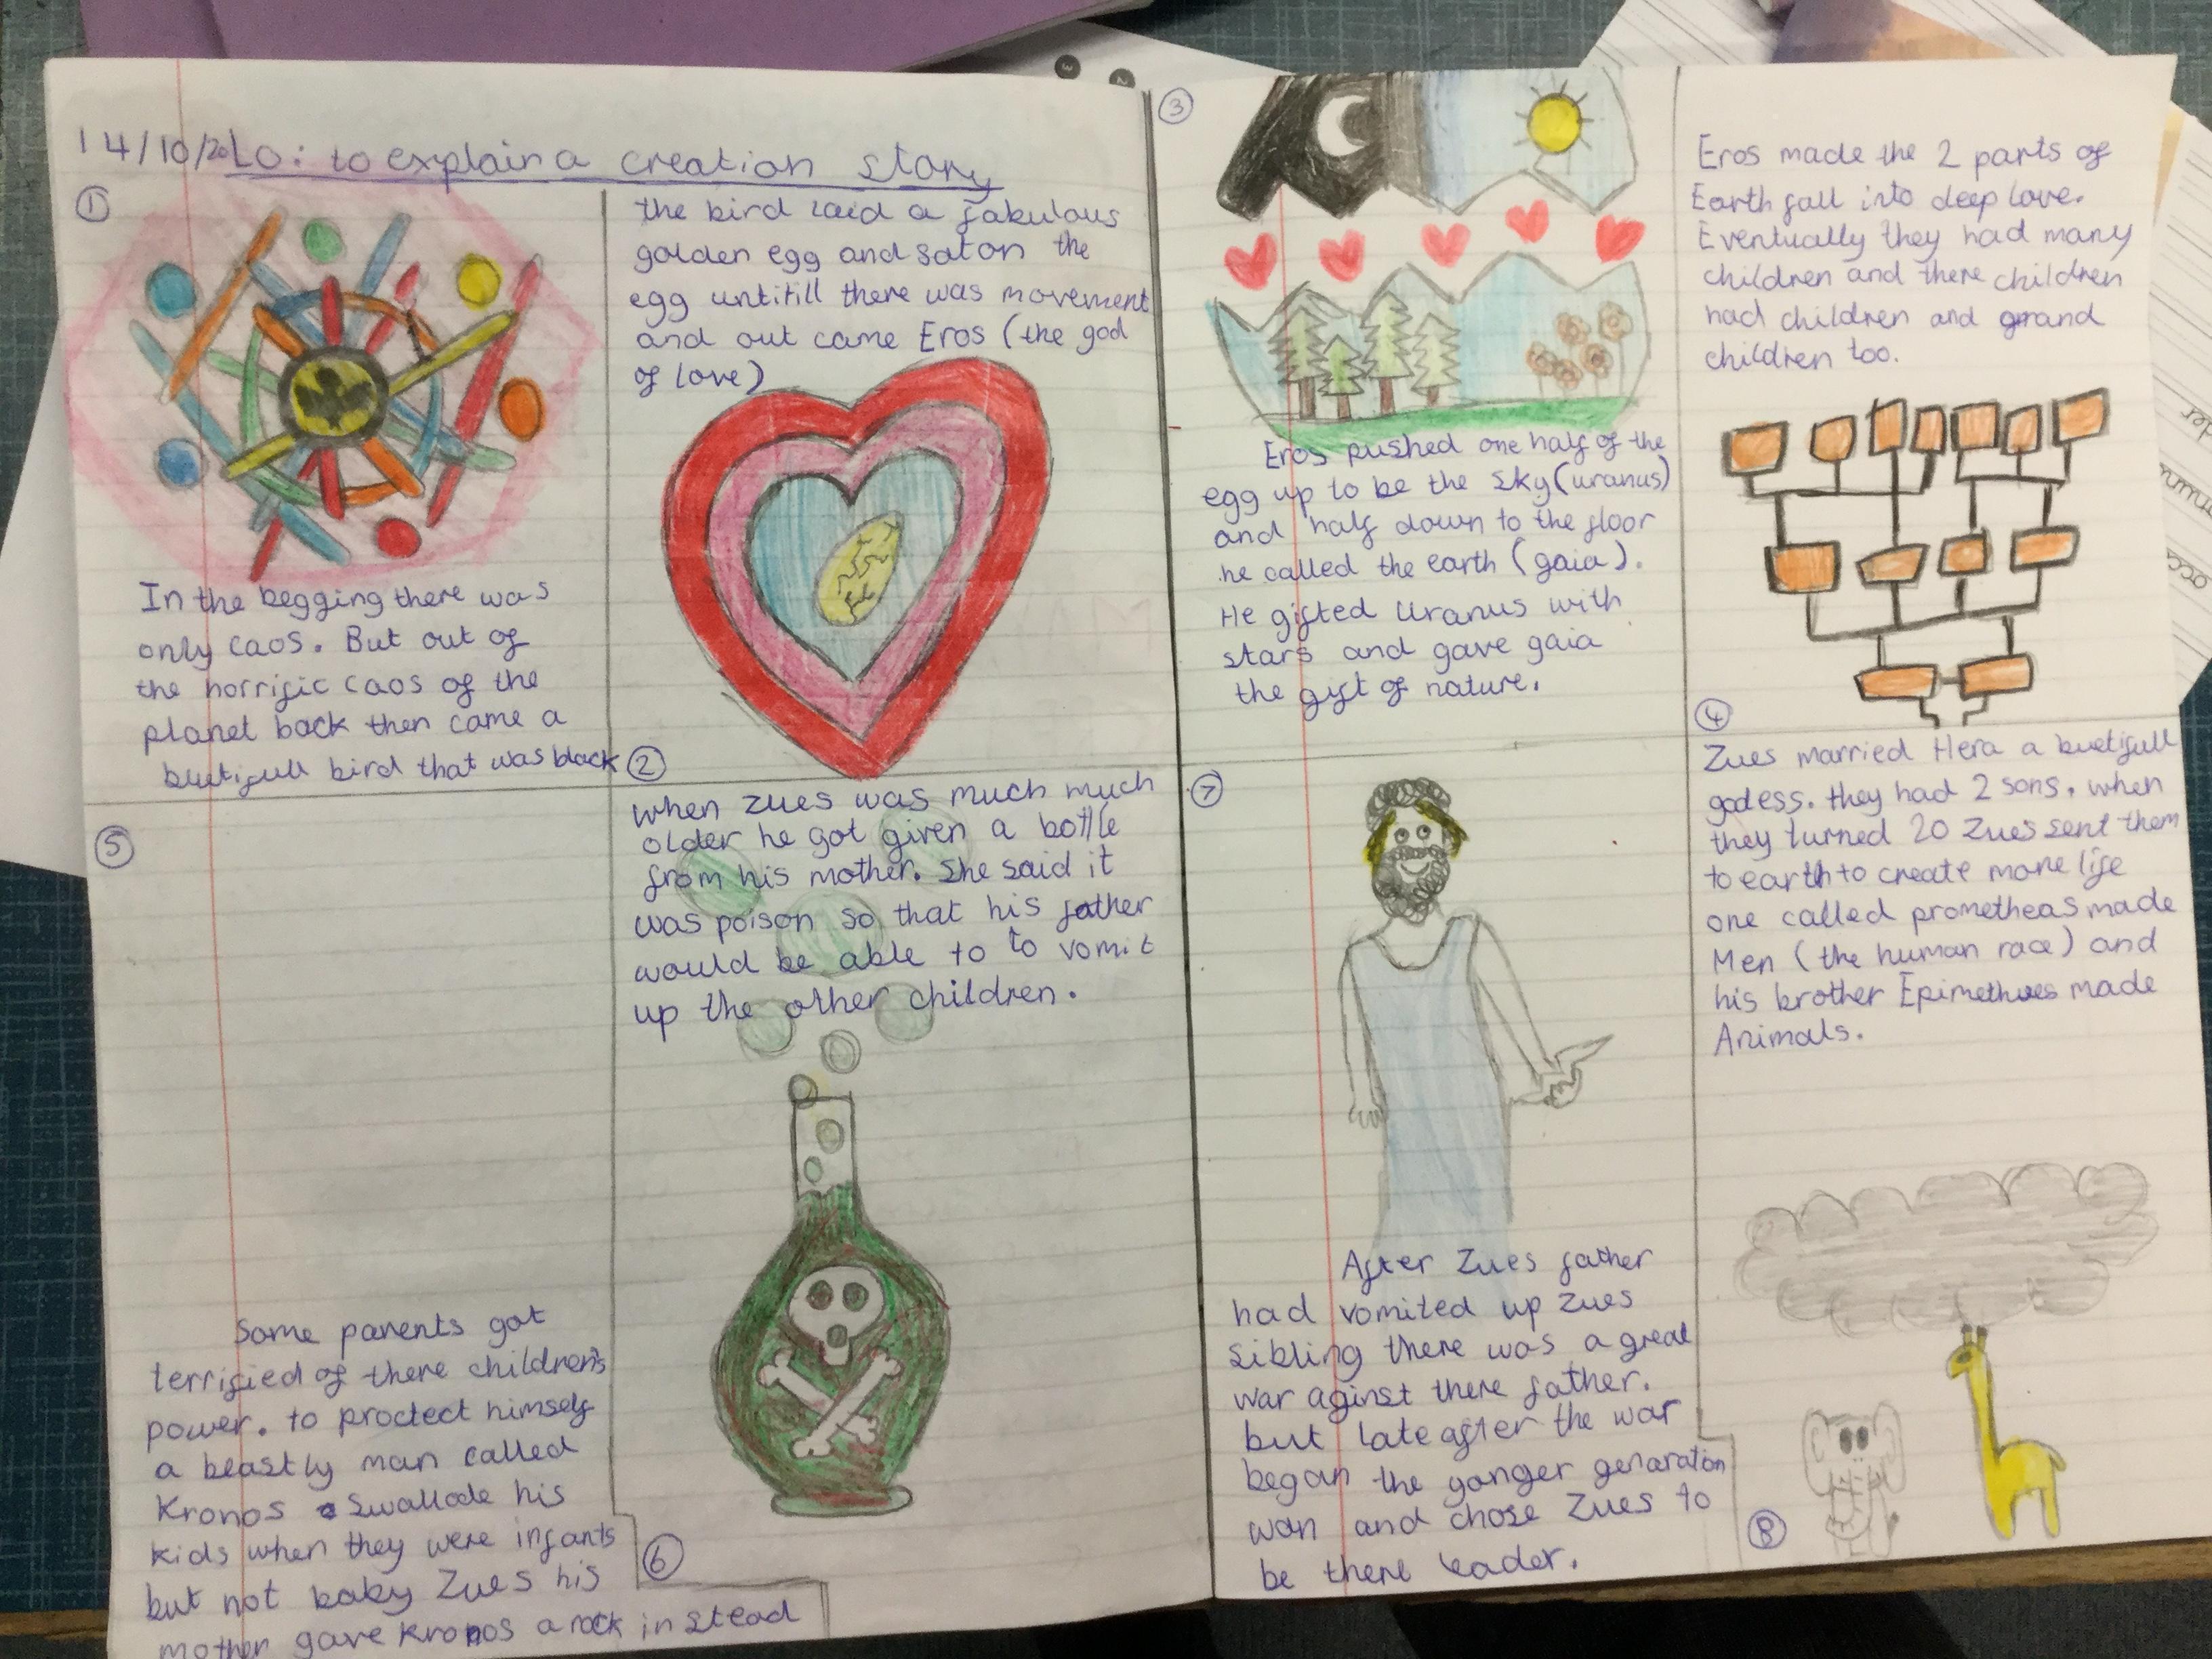 14/10/20 LO: to explain a creation story
①
In the begging there was
only caos. But out of
the horrific caos of the
planet back then came a
buetifull bird that was black
②
the bird laid a fabulous
golden egg and sat on the
egg untitill there was movement
and out came Eros (the god
of love)
③
Eros pushed one half of the
egg up to be the sky (uranus)
and half down to the floor
he called the earth (gaia).
He gifted Uranus with
stars and gave gaia
the gift of nature.
④
Eros made the 2 parts of
Earth fall into deep love.
Eventually they had many
children and there children
had children and grand
children too.
⑤
Some parents got
terrified of there children's
power. to proctect himself
a beastly man called
Kronos swallode his
kids when they were infants
but not baby Zues his
mother gave Kronos a rock in stead
⑥
when zues was much much
older he got given a bottle
from his mother. She said it
was poison so that his father
would be able to to vomit
up the other children.
⑦
After Zues father
had vomited up zues
sibling there was a great
war aginst there father.
but late after the war
began the yonger genaration
won and chose Zues to
be there leader.
⑧
Zues married Hera a buetifull
godess. they had 2 sons. when
they turned 20 Zues sent them
to earth to create more life
one called prometheas made
Men (the human race) and
his brother Epimethues made
Animals.